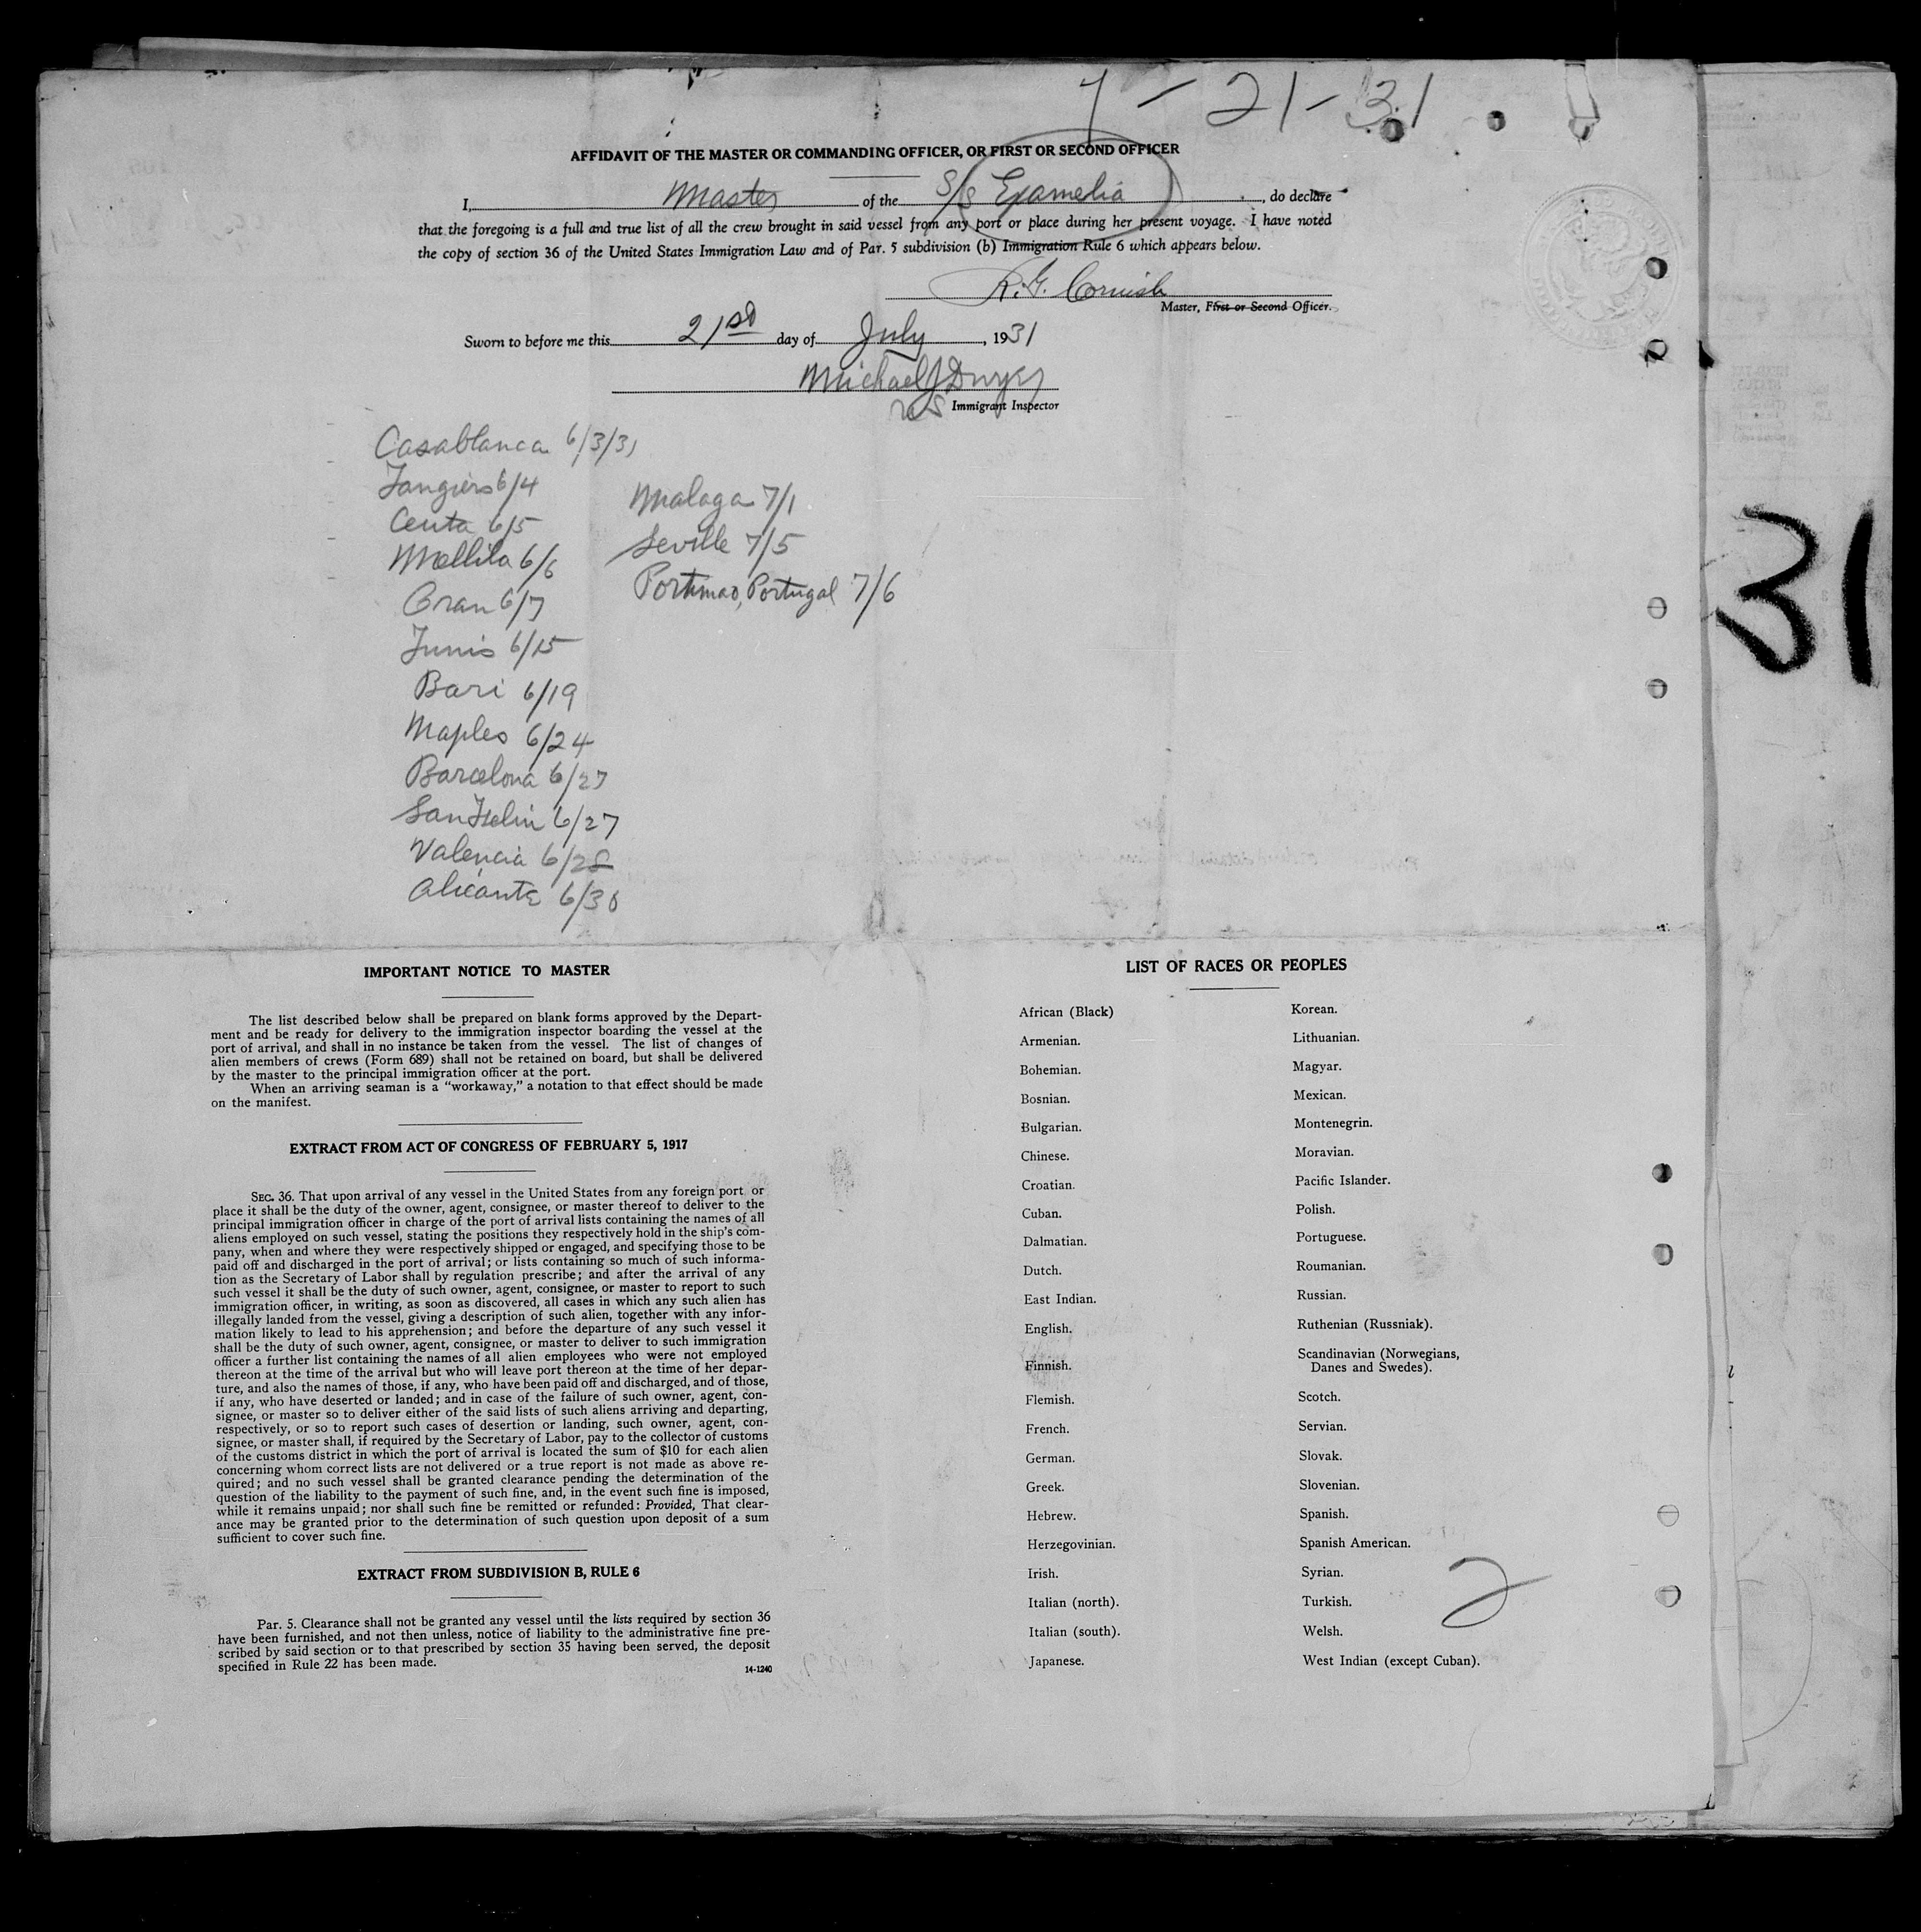 7-21-31
AFFIDAVIT OF THE MASTER OR COMMANDING OFFICER, OR FIRST OR SECOND OFFICER
I, Master of the S/S Examelia, do declare
that the foregoing is a full and true list of all the crew brought in said vessel from any port or place during her present voyage. I have noted
the copy of section 36 of the United States Immigration Law and of Par. 5 subdivision (b) Immigration Rule 6 which appears below.
R. G. Cornish
Master, First or Second Officer.
Sworn to before me this 21st day of July, 1931
Michael J Dwyer
US Immigrant Inspector
Casablanca 6/3/31
Tangiers 6/4
Ceuta 6/5
Mellila 6/6
Oran 6/7
Tunis 6/15
Bari 6/19
Naples 6/24
Barcelona 6/27
San Feliu 6/27
Valencia 6/28
Alicante 6/30
Malaga 7/1
Seville 7/5
Portimao, Portugal 7/6
31
IMPORTANT NOTICE TO MASTER
The list described below shall be prepared on blank forms approved by the Depart-
ment and be ready for delivery to the immigration inspector boarding the vessel at the
port of arrival, and shall in no instance be taken from the vessel. The list of changes of
alien members of crews (Form 689) shall not be retained on board, but shall be delivered
by the master to the principal immigration officer at the port.
When an arriving seaman is a “workaway,” a notation to that effect should be made
on the manifest.
EXTRACT FROM ACT OF CONGRESS OF FEBRUARY 5, 1917
SEC. 36. That upon arrival of any vessel in the United States from any foreign port or
place it shall be the duty of the owner, agent, consignee, or master thereof to deliver to the
principal immigration officer in charge of the port of arrival lists containing the names of all
aliens employed on such vessel, stating the positions they respectively hold in the ship's com-
pany, when and where they were respectively shipped or engaged, and specifying those to be
paid off and discharged in the port of arrival; or lists containing so much of such informa-
tion as the Secretary of Labor shall by regulation prescribe; and after the arrival of any
such vessel it shall be the duty of such owner, agent, consignee, or master to report to such
immigration officer, in writing, as soon as discovered, all cases in which any such alien has
illegally landed from the vessel, giving a description of such alien, together with any infor-
mation likely to lead to his apprehension; and before the departure of any such vessel it
shall be the duty of such owner, agent, consignee, or master to deliver to such immigration
officer a further list containing the names of all alien employees who were not employed
thereon at the time of the arrival but who will leave port thereon at the time of her depar-
ture, and also the names of those, if any, who have been paid off and discharged, and of those,
if any, who have deserted or landed; and in case of the failure of such owner, agent, con-
signee, or master so to deliver either of the said lists of such aliens arriving and departing,
respectively, or so to report such cases of desertion or landing, such owner, agent, con-
signee, or master shall, if required by the Secretary of Labor, pay to the collector of customs
of the customs district in which the port of arrival is located the sum of $10 for each alien
concerning whom correct lists are not delivered or a true report is not made as above re-
quired; and no such vessel shall be granted clearance pending the determination of the
question of the liability to the payment of such fine, and, in the event such fine is imposed,
while it remains unpaid; nor shall such fine be remitted or refunded: Provided, That clear-
ance may be granted prior to the determination of such question upon deposit of a sum
sufficient to cover such fine.
EXTRACT FROM SUBDIVISION B, RULE 6
Par. 5. Clearance shall not be granted any vessel until the lists required by section 36
have been furnished, and not then unless, notice of liability to the administrative fine pre-
scribed by said section or to that prescribed by section 35 having been served, the deposit
specified in Rule 22 has been made.
14-1240
LIST OF RACES OR PEOPLES
African (Black)
Armenian.
Bohemian.
Bosnian.
Bulgarian.
Chinese.
Croatian.
Cuban.
Dalmatian.
Dutch.
East Indian.
English.
Finnish.
Flemish.
French.
German.
Greek.
Hebrew.
Herzegovinian.
Irish.
Italian (north).
Italian (south).
Japanese.
Korean.
Lithuanian.
Magyar.
Mexican.
Montenegrin.
Moravian.
Pacific Islander.
Polish.
Portuguese.
Roumanian.
Russian.
Ruthenian (Russniak).
Scandinavian (Norwegians,
Danes and Swedes).
Scotch.
Servian.
Slovak.
Slovenian.
Spanish.
Spanish American.
Syrian.
Turkish.
Welsh.
West Indian (except Cuban).
2